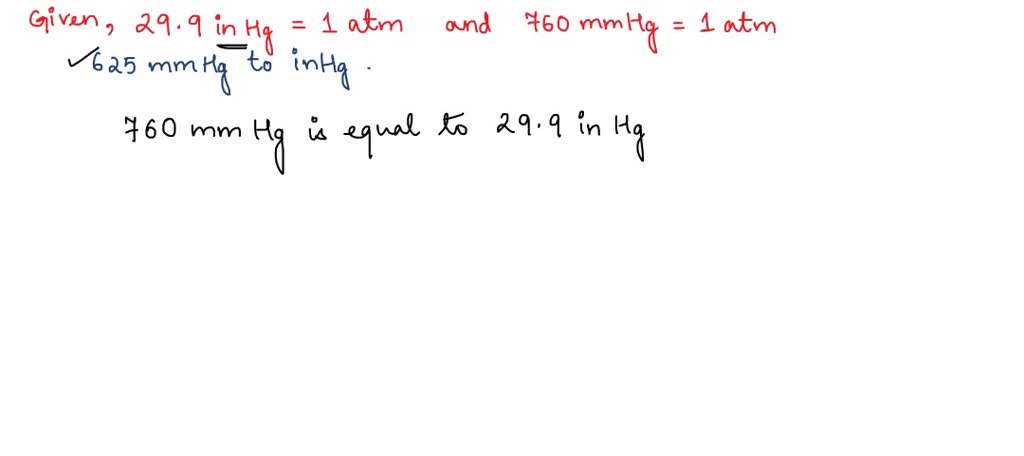 Given, 29.9 in Hg = 1 atm and 760 mmHg = 1 atm
✓625 mmHg to inHg.
760 mm Hg is equal to 29.9 in Hg